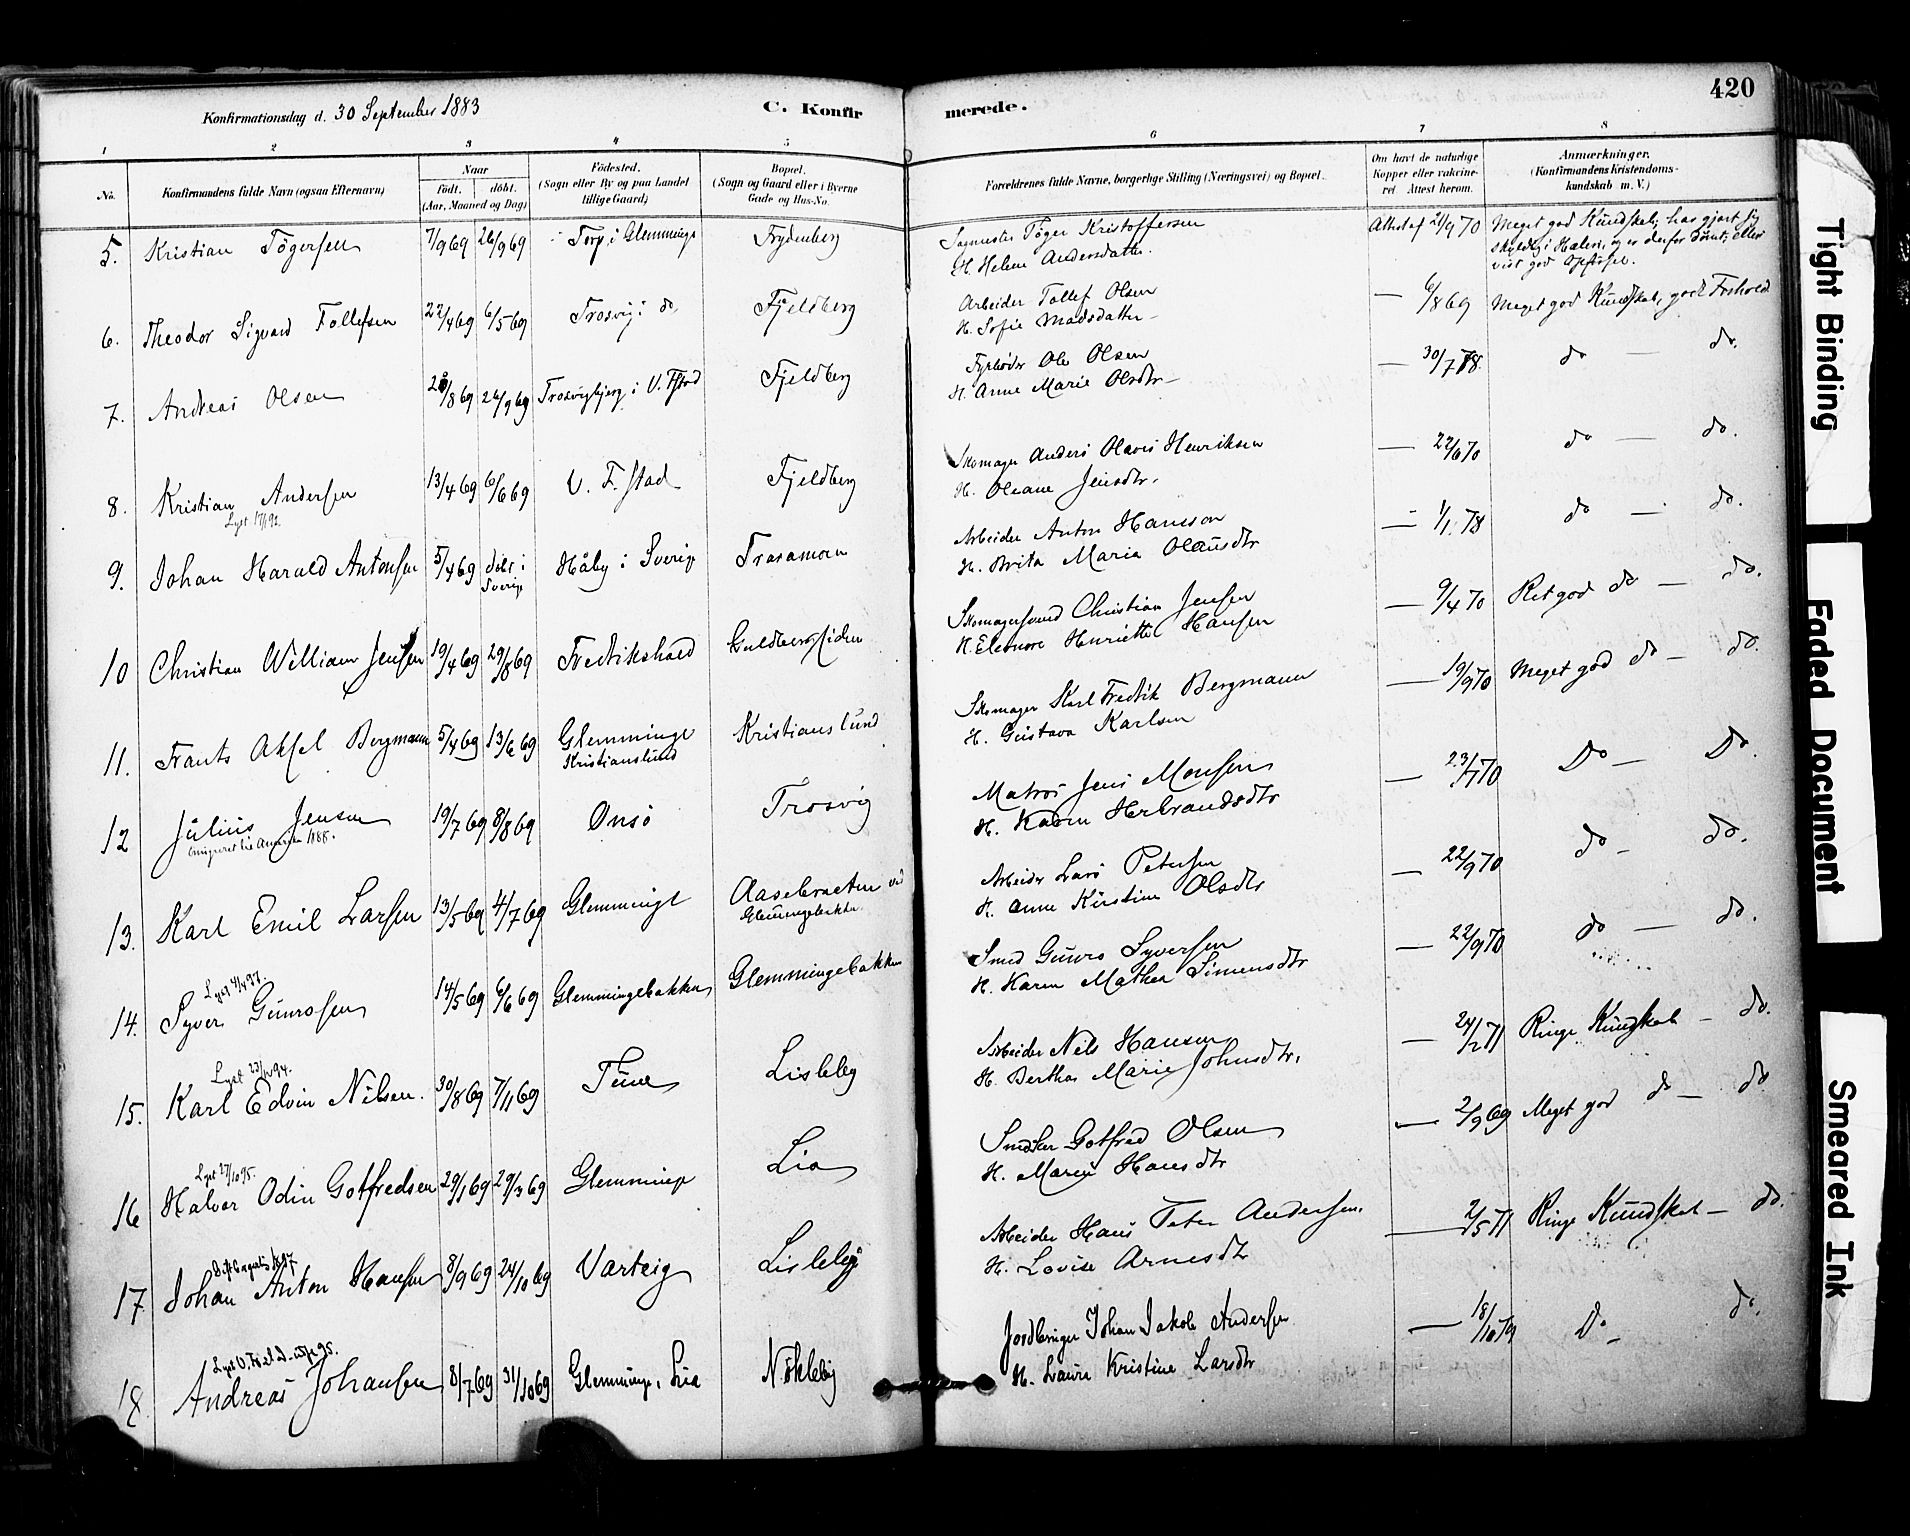 420
Konfirmationsdag d. 30 September 1883
C. Konfirmerede.
1 2 3 4 5 6 7 8
No.
Konfirmandens fulde Navn (ogsaa Efternavn)
Naar
födt. döbt.
(Aar, Maaned og Dag)
Födested.
(Sogn eller By og paa Landet
tillige Gaard)
Bopæl.
(Sogn og Gaard eller i Byerne
Gade og Hus-No.
Forældrenes fulde Navne, borgerlige Stilling (Næringsvei) og Bopæl.
Om havt de naturlige
Kopper eller vakcine-
ret Attest herom.
Anmærkninger.
(Konfirmandens Kristendoms-
kundskab m. V.)
5. Kristian Tögersen 7/9 69 26/9 69 Torp i Glemminge Frydenberg
Töger Kristoffersen
H. Helene Andersdatter.
21/9 70 Meget god Kundskab; har gjort sig
skyldig i og er derfor
god Opförsel.
6. Theodor Sigvard Tollefsen 22/4 69 6/5 69 Trosvig i do. Fjeldberg
Arbeider Tollef Olsen
H. Sofie Madsdatter
— 6/8 69 Meget god Kundskab, godt Forhold
7. Andreas Olsen 26/9 69 Trosvigbjerg i V. Fstad Fjeldberg
Fyrböder Ole Olsen
H. Anne Marie Olsdtr
— 30/7 78. do — do.
8. Kristian Andersen 13/4 69 6/6 69 V. F. stad Fjeldberg
Skomager Anders Olavis Henriksen
H. Oleane Jensdtr.
— 22/6 70 do — do.
9. Johan Harald Antonsen 5/4 69 döbt i
Sverige Håby i Sverige Traramoen
Arbeider Anton Hansson
H. Brita Maria Olausdtr
— 1/1 78 do — do.
10 Christian William Jensen 19/4 69 29/8 69 Fredrikshald Guldbergsiden
Skomagersvend Christian Jensen
H. Eleonore Henriette Hansen
— 9/4 70 Ret god do — do.
11. Frants Aksel Bergmann 5/4 69 13/6 69 Glemminge
Kristianslund Kristianslund
Skomager Karl Fredrik Bergmann
H. Gustava Karlsen
— 19/9 70 Meget god do — do.
12 Julius Jensen 19/7 69 8/8 69 Onsö Trosvig
emigreret til Amerika 1888.
Matros Jens Monsen
H. Karen Herbrandsdtr
— 23/7 70 Do — Do.
13. Karl Emil Larsen 13/5 69 4/7 69 Glemminge Aasebraeten ved
Glemmingebakke.
Arbeider Lars Petersen
H. Anne Kirstine Olsdtr
— 22/9 70 do — do.
14. Syver Gunrosen 14/5 69 6/6 69 Glemmingebakken Glemmingebakken
Smed Gunro Syversen
H. Karen Mathea Simensdtr
— 22/9 70 do — do.
15. Karl Edvin Nilsen. 30/8 69 7/11 69 Tune Lisleby
Arbeider Nils Hansen
H. Berthas Marie Johnsdtr.
— 24/2 71 Ringe Kundskab — do.
16 Lyst 27/10 95.
Halvor Odin Gotfredsen 29/1 69 29/3 69 Glemminge Lia
Gotfred Olsen
H. Maren Hansdtr
— 2/9 69 Meget god do — do
17. Johan Anton Hansen 8/9 69 24/10 69 Varteig Lisleby
Arbeider Hans Peter Andersen.
H. Lovise Arnesdtr
— 2/5 71 Ringe Kundskab — do.
18. Andreas Johansen 8/7 69 31/10 69 Glemminge, Lia Nökleby
Jordbruger Johan Jakob Andersen
H. Laura Kristine Larsdtr
— 18/10 79 Do — do.
Tight Binding
Faded Document
Smeared Ink